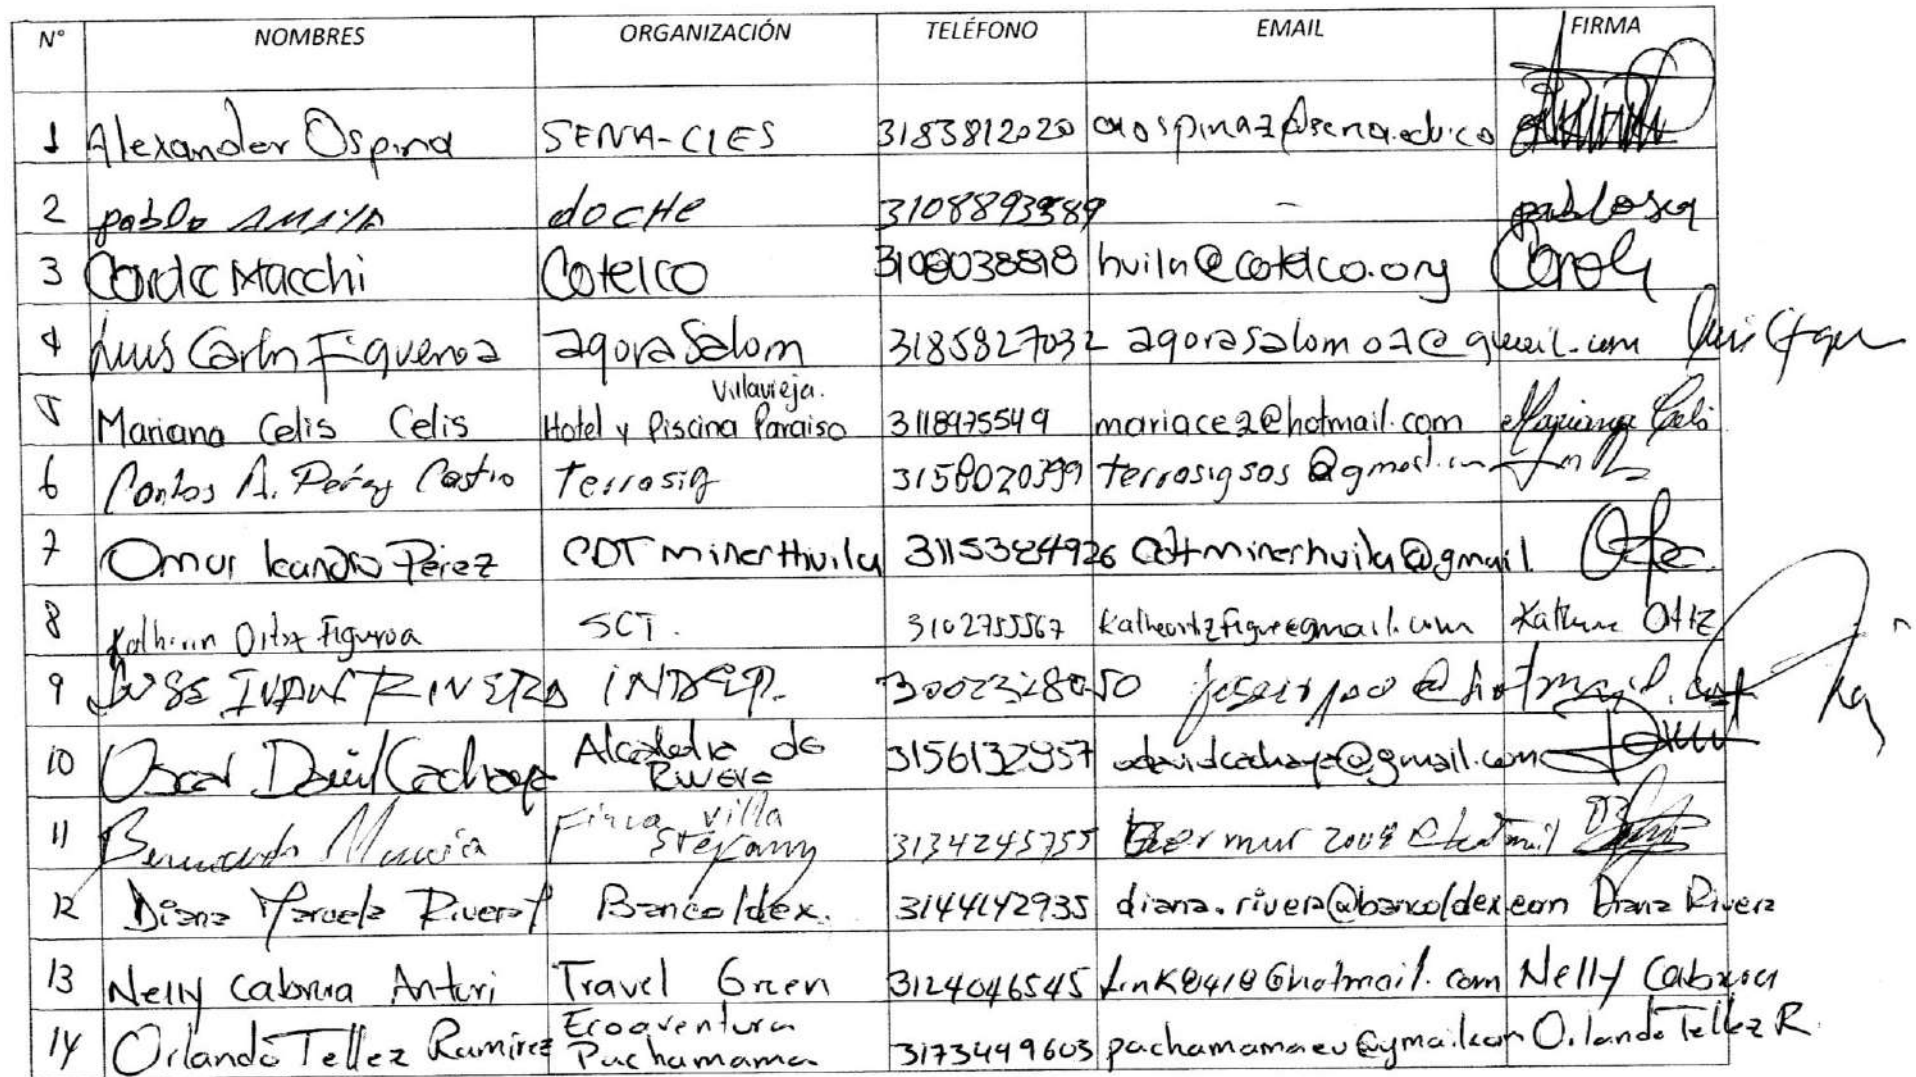 N° NOMBRES ORGANIZACIÓN TELÉFONO EMAIL FIRMA
1 Alexander Ospina SENA-CIES 3183812020 aospinaz@sena.edu.co
2 pablo AMAYA docHe 3108893989 -
3 Carole Macchi Cotelco 3108038818 huila@cotelco.org Carole
4 Luis Carlos Figueroa agora Salom 3185827032 agorasalom02@gmail.com
5 Mariana Celis Celis Hotel y Piscina Paraiso Villavieja. 3118975549 mariace2@hotmail.com Mariana Celis
6 Carlos A. Pérez Castro Terrasig 3158020399 terrasigsas@gmail.com
7 Omar leandro Pérez CDT minerHuila 3115384926 cdtminerhuila@gmail.
8 Katherin Ortiz Figueroa SCT. 3102755567 Katheortizfigue@gmail.com Katherine Ortiz
9 JOSE IVAN RIVERA INDEP. 3002328050 @hotmail.com
10 Oscar David Cachaya Alcaldia de Rivera 3156132957 odavidcachaya@gmail.com
11 Bernardo Murcia Finca villa Stefany 3134245755 bermur2009@hotmail
12 Diana Marcela Rivera Bancoldex. 3144142935 diana.rivera@bancoldex.com Diana Rivera
13 Nelly Cabrera Anturi Travel Green 3124046545 link8418@hotmail.com Nelly Cabrera
14 Orlando Tellez Ramirez Ecoaventura Pachamama 3173449603 pachamamaev@gmail.com Orlando Tellez R.